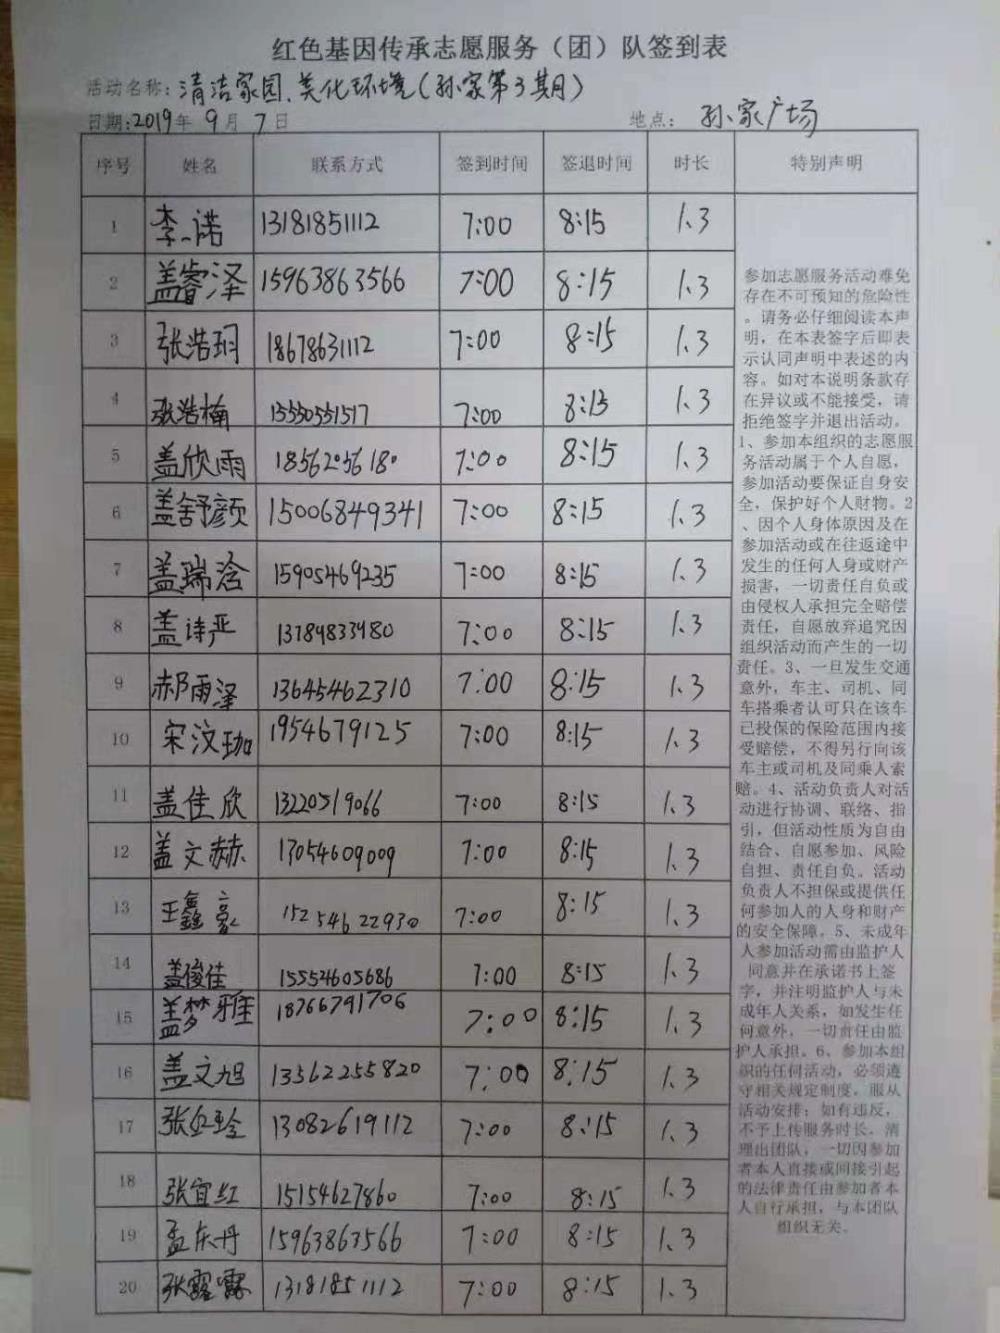 红色基因传承志愿服务（团）队签到表
活动名称：清洁家园、美化环境（孙家第3期月）
日期：2019年 9月 7日 地点：孙家广场
序号 姓名 联系方式 签到时间 签退时间 时长 特别声明
1 李一诺 13181851112 7:00 8:15 1.3
2 盖睿泽 15963863566 7:00 8:15 1.3
3 张浩玥 18678631112 7:00 8:15 1.3
4 张浩楠 15550551517 7:00 8:15 1.3
5 盖欣雨 18562056180 7:00 8:15 1.3
6 盖舒颜 15006849341 7:00 8:15 1.3
7 盖瑞涵 15905469235 7:00 8:15 1.3
8 盖诗严 13789833980 7:00 8:15 1.3
9 郝雨泽 13645462310 7:00 8:15 1.3
10 宋汶珈 1954679125 7:00 8:15 1.3
11 盖佳欣 13220519066 7:00 8:15 1.3
12 盖文赫 17054609009 7:00 8:15 1.3
13 王鑫豪 15254622930 7:00 8:15 1.3
14 盖俊佳 15554605686 7:00 8:15 1.3
15 盖梦雅 18766791706 7:00 8:15 1.3
16 盖文旭 13562255820 7:00 8:15 1.3
17 张 13082619112 7:00 8:15 1.3
18 张宜红 15154627860 7:00 8:15 1.3
19 孟庆丹 15963863566 7:00 8:15 1.3
20 张露露 13181851112 7:00 8:15 1.3
参加志愿服务活动难免
存在不可预知的危险性
。请务必仔细阅读本声
明，在本表签字后即表
示认同声明中表述的内
容。如对本说明条款存
在异议或不能接受，请
拒绝签字并退出活动。
1、参加本组织的志愿服
务活动属于个人自愿，
参加活动要保证自身安
全，保护好个人财物。2
、因个人身体原因及在
参加活动或在往返途中
发生的任何人身或财产
损害，一切责任自负或
由侵权人承担完全赔偿
责任，自愿放弃追究因
组织活动而产生的一切
责任。3、一旦发生交通
意外，车主、司机、同
车搭乘者认可只在该车
已投保的保险范围内接
受赔偿，不得另行向该
车主或司机及同乘人索
赔。4、活动负责人对活
动进行协调、联络、指
引，但活动性质为自由
结合、自愿参加、风险
自担、责任自负。活动
负责人不担保或提供任
何参加人的人身和财产
的安全保障。5、未成年
人参加活动需由监护人
同意并在承诺书上签
字，并注明监护人与未
成年人关系，如发生任
何意外，一切责任由监
护人承担。6、参加本组
织的任何活动，必须遵
守相关规定制度，服从
活动安排；如有违反，
不予上传服务时长，清
理出团队，一切因参加
者本人直接或间接引起
的法律责任由参加者本
人自行承担，与本团队
组织无关。